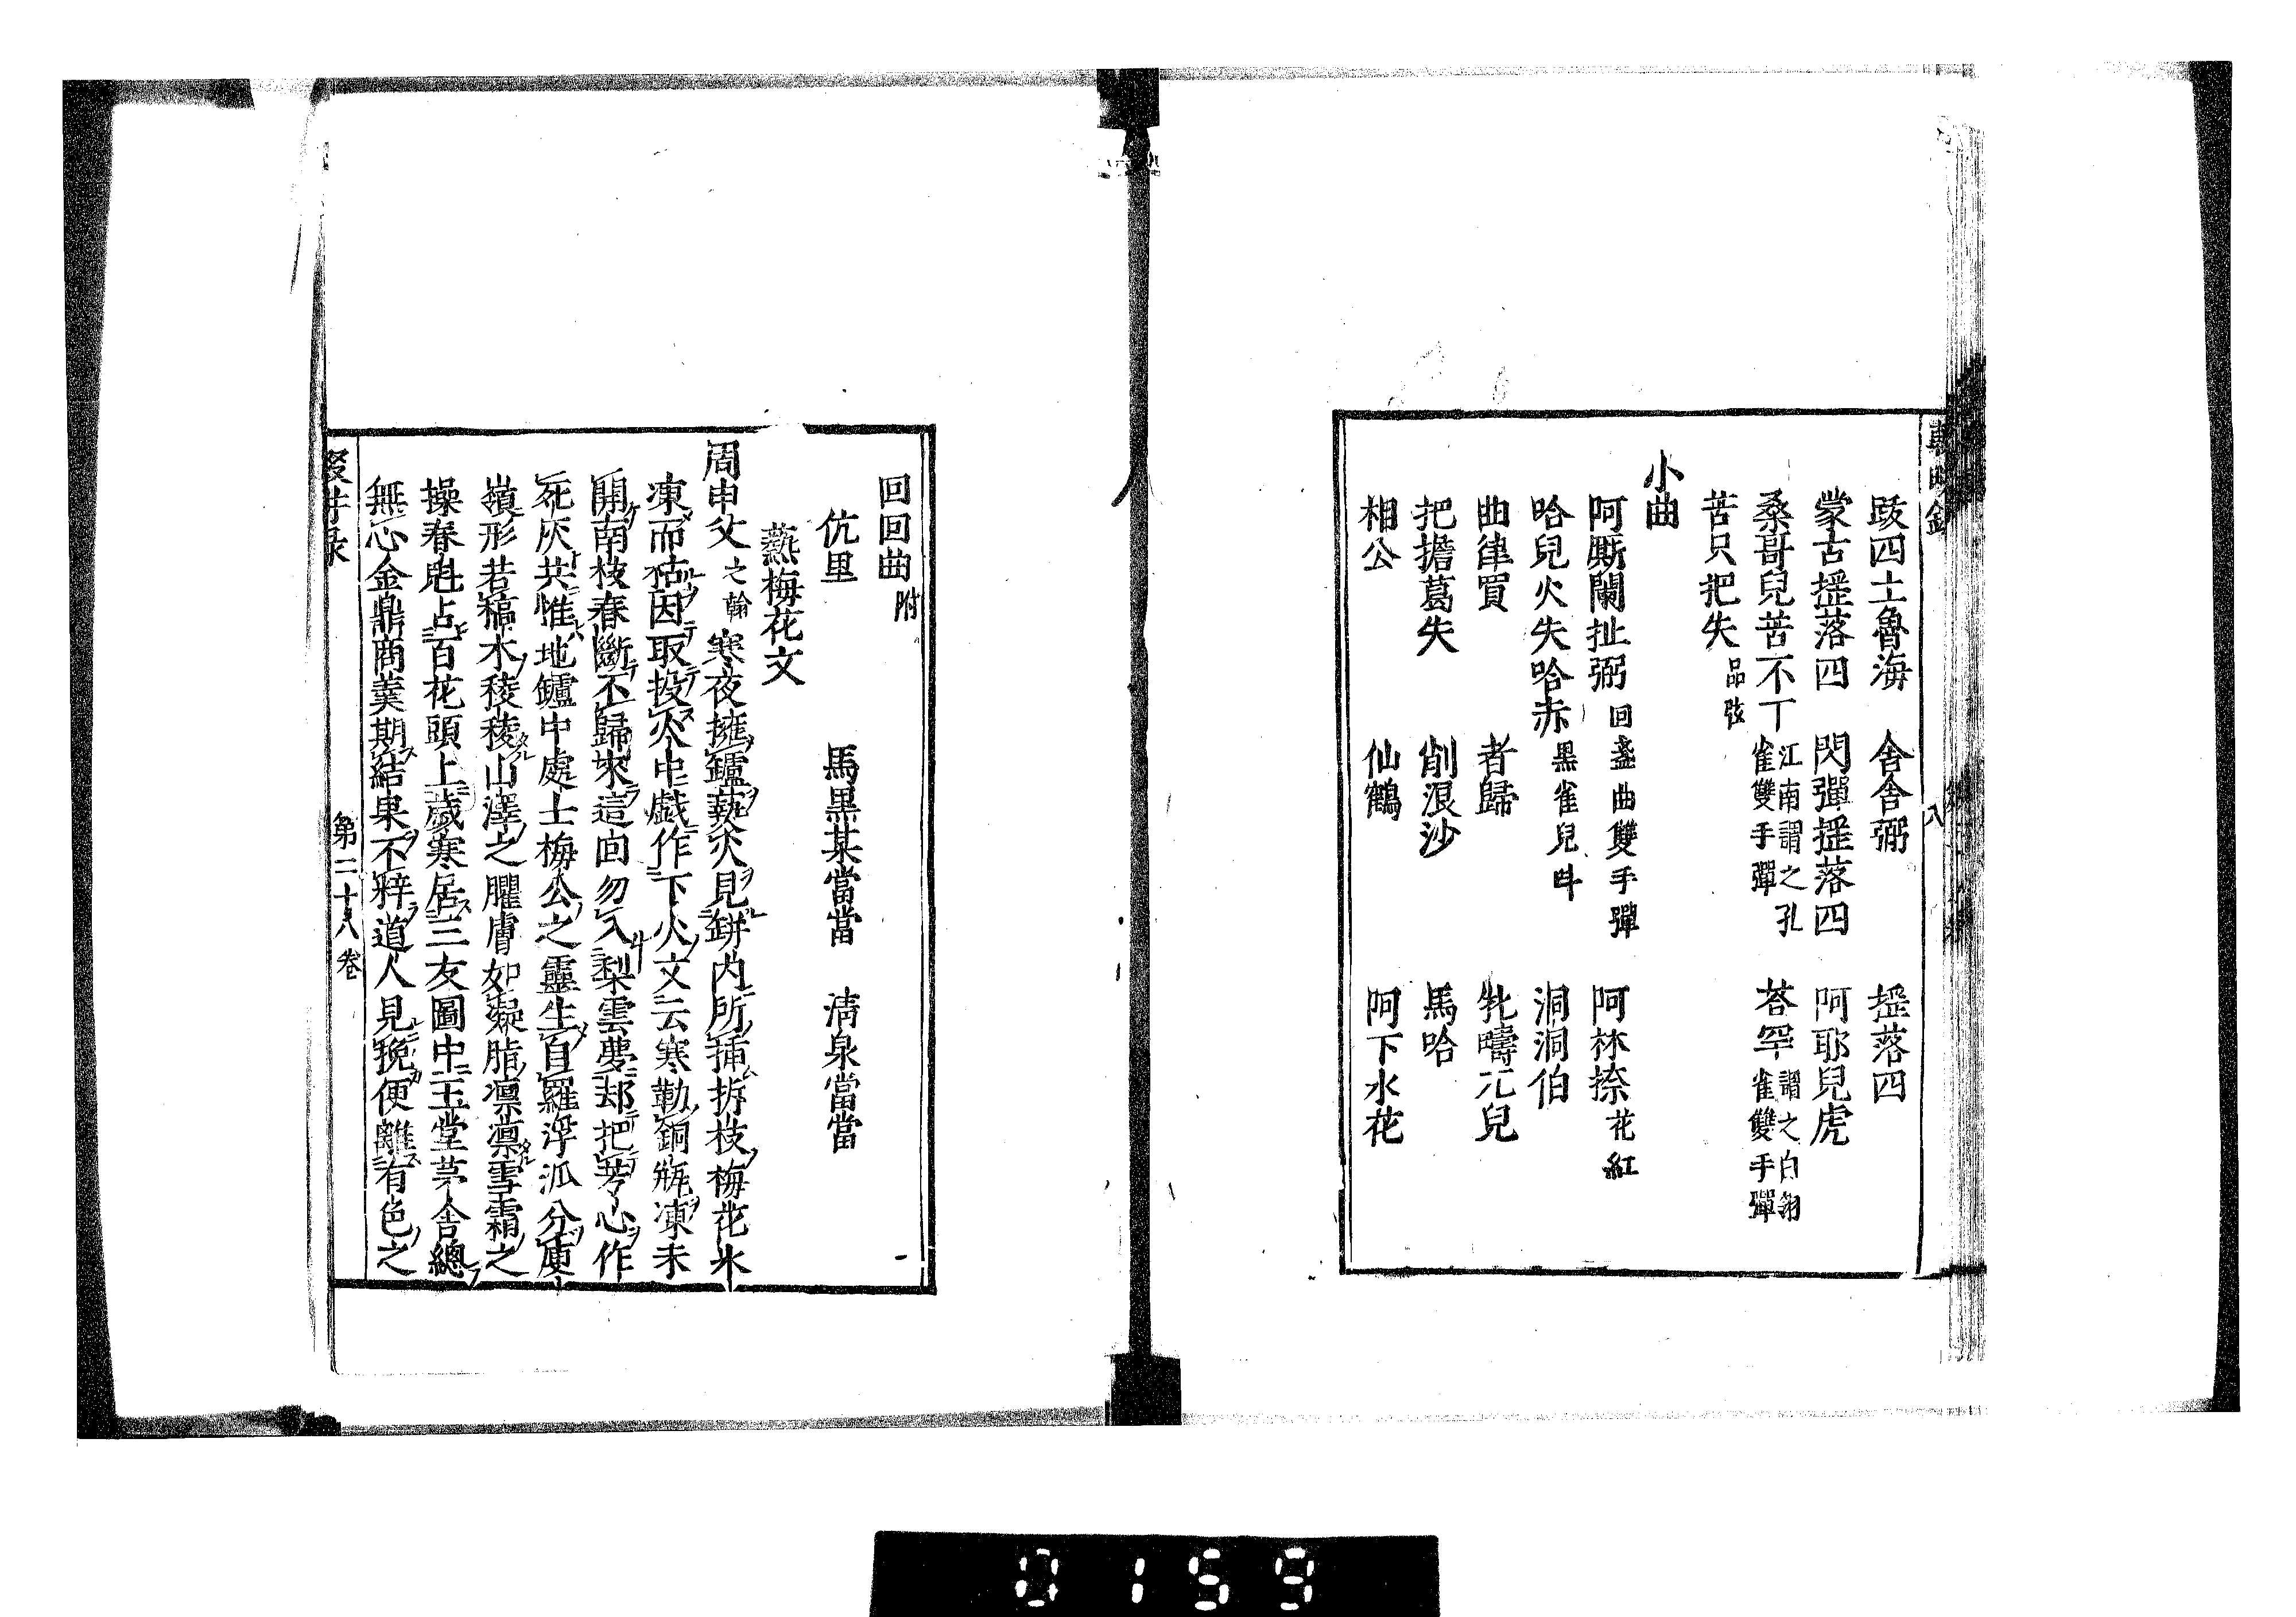 跋四土魯海　舍舍弼　搖落四
蒙古搖落四　閃彈搖落四　阿耶兒虎
桑哥兒苦不丁 江南謂之孔雀雙手彈　荅罕 謂之白翎雀雙手彈
苦只把失 品弦
小曲
阿厮闌扯弼 回盞曲雙手彈　阿林捺 花紅
哈兒火失哈赤 黑雀兒叫　洞洞伯
曲律買　者歸　牝疇兀兒
把擔葛失　削浪沙　馬哈
相公　仙鶴　阿下水花
回回曲 附
伉里　馬黑某當當　清泉當當
爇梅花文
周申父 之翰 寒夜擁鑪爇火見缾内所揷折枝梅花氷
凍而枯因取投火中戯作下火文云寒勒銅瓶凍未
開南枝春斷不歸來這回勿入梨雲夢却把芳心作
死灰共惟地鑪中處士梅公之靈生自羅浮派分庾
嶺形若槁木稜稜山澤之臞膚如凝脂凛凛雪霜之
操春魁占百花頭上歲寒居三友圖中玉堂茅舎總
無心金鼎商羹期結果不辤道人見挽便離有色之
輟畊录　第二十八卷
0159